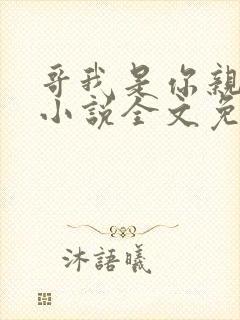 哥我是你亲
小说全文免
沐語曦